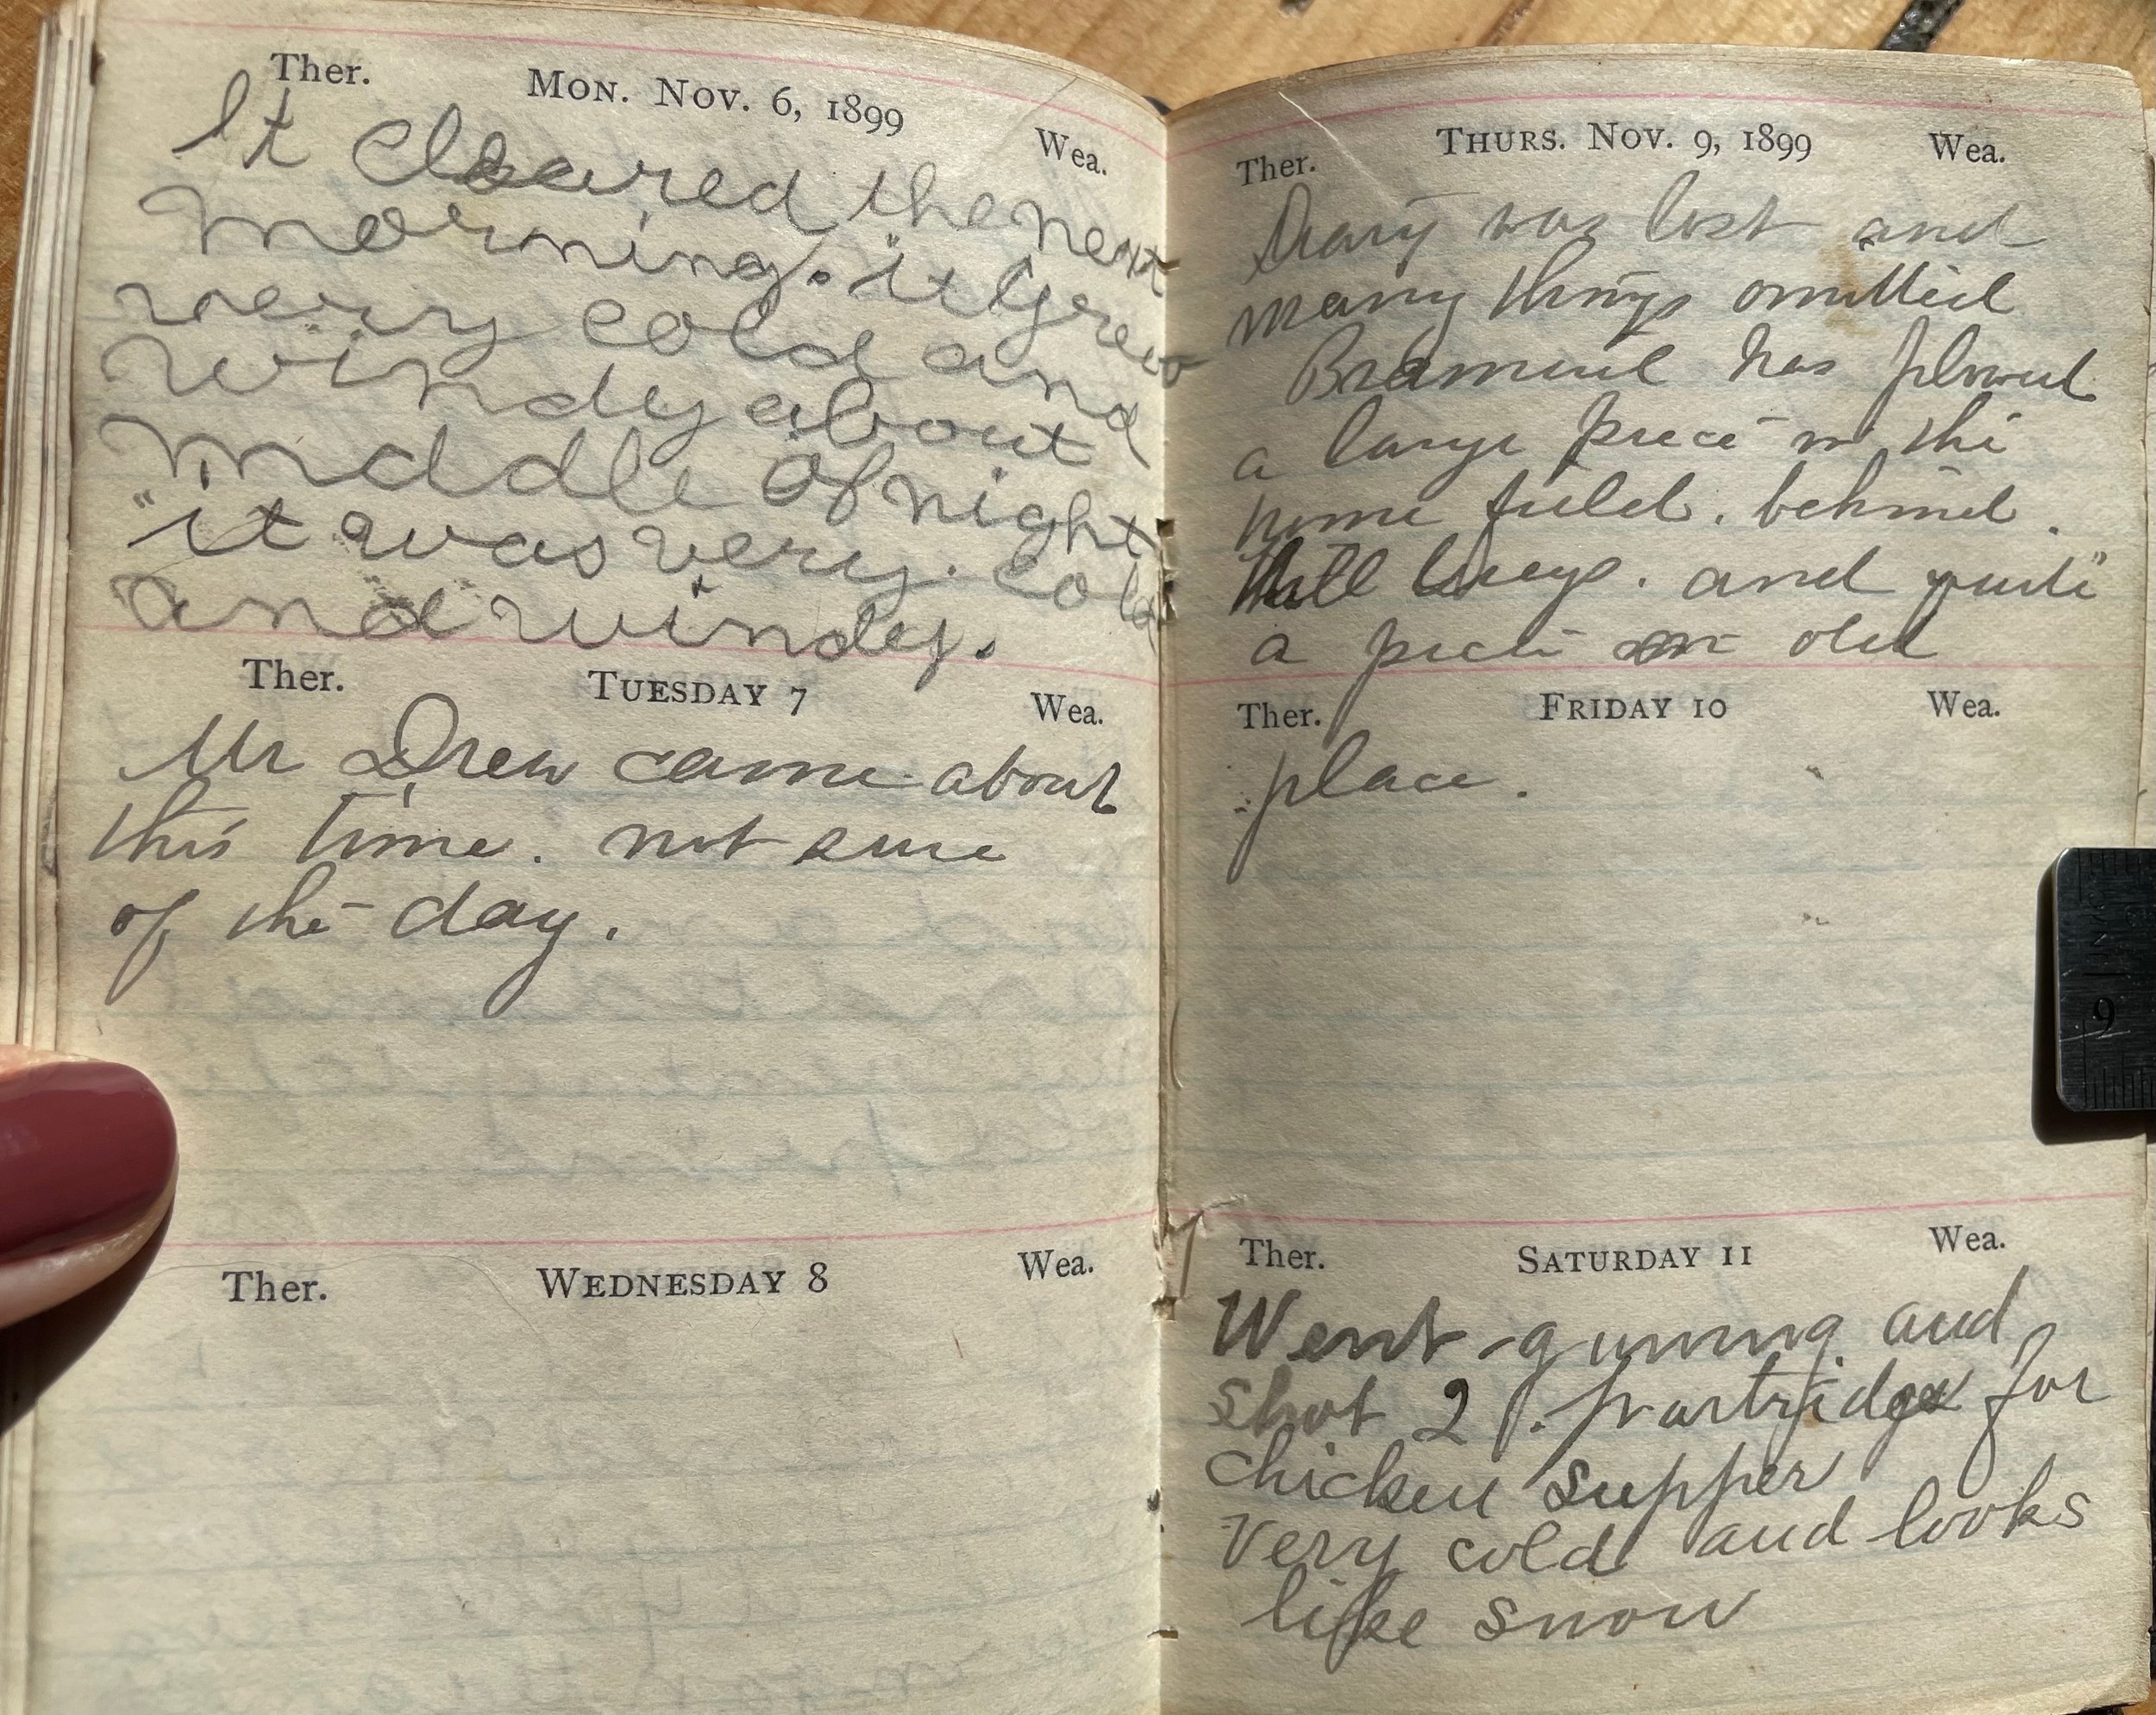 Ther. Mon. Nov. 6, 1899 Wea.
It cleared the next
morning. it grew
very cold and
windy about
middle of night
"it was very. cold
and windy.
Ther. Tuesday 7 Wea.
Mr Drew came about
this time. not sure
of the day.
Ther. Wednesday 8 Wea.
Ther. Thurs. Nov. 9, 1899 Wea.
Diary was lost and
many things omitted
has plowed
a large piece in the
home field. behind.
and quite
a piece on old
Ther. Friday 10 Wea.
place.
Ther. Saturday 11 Wea.
Went gunning and
shot 2 P. partridges for
chicken supper
Very cold and looks
like snow
9